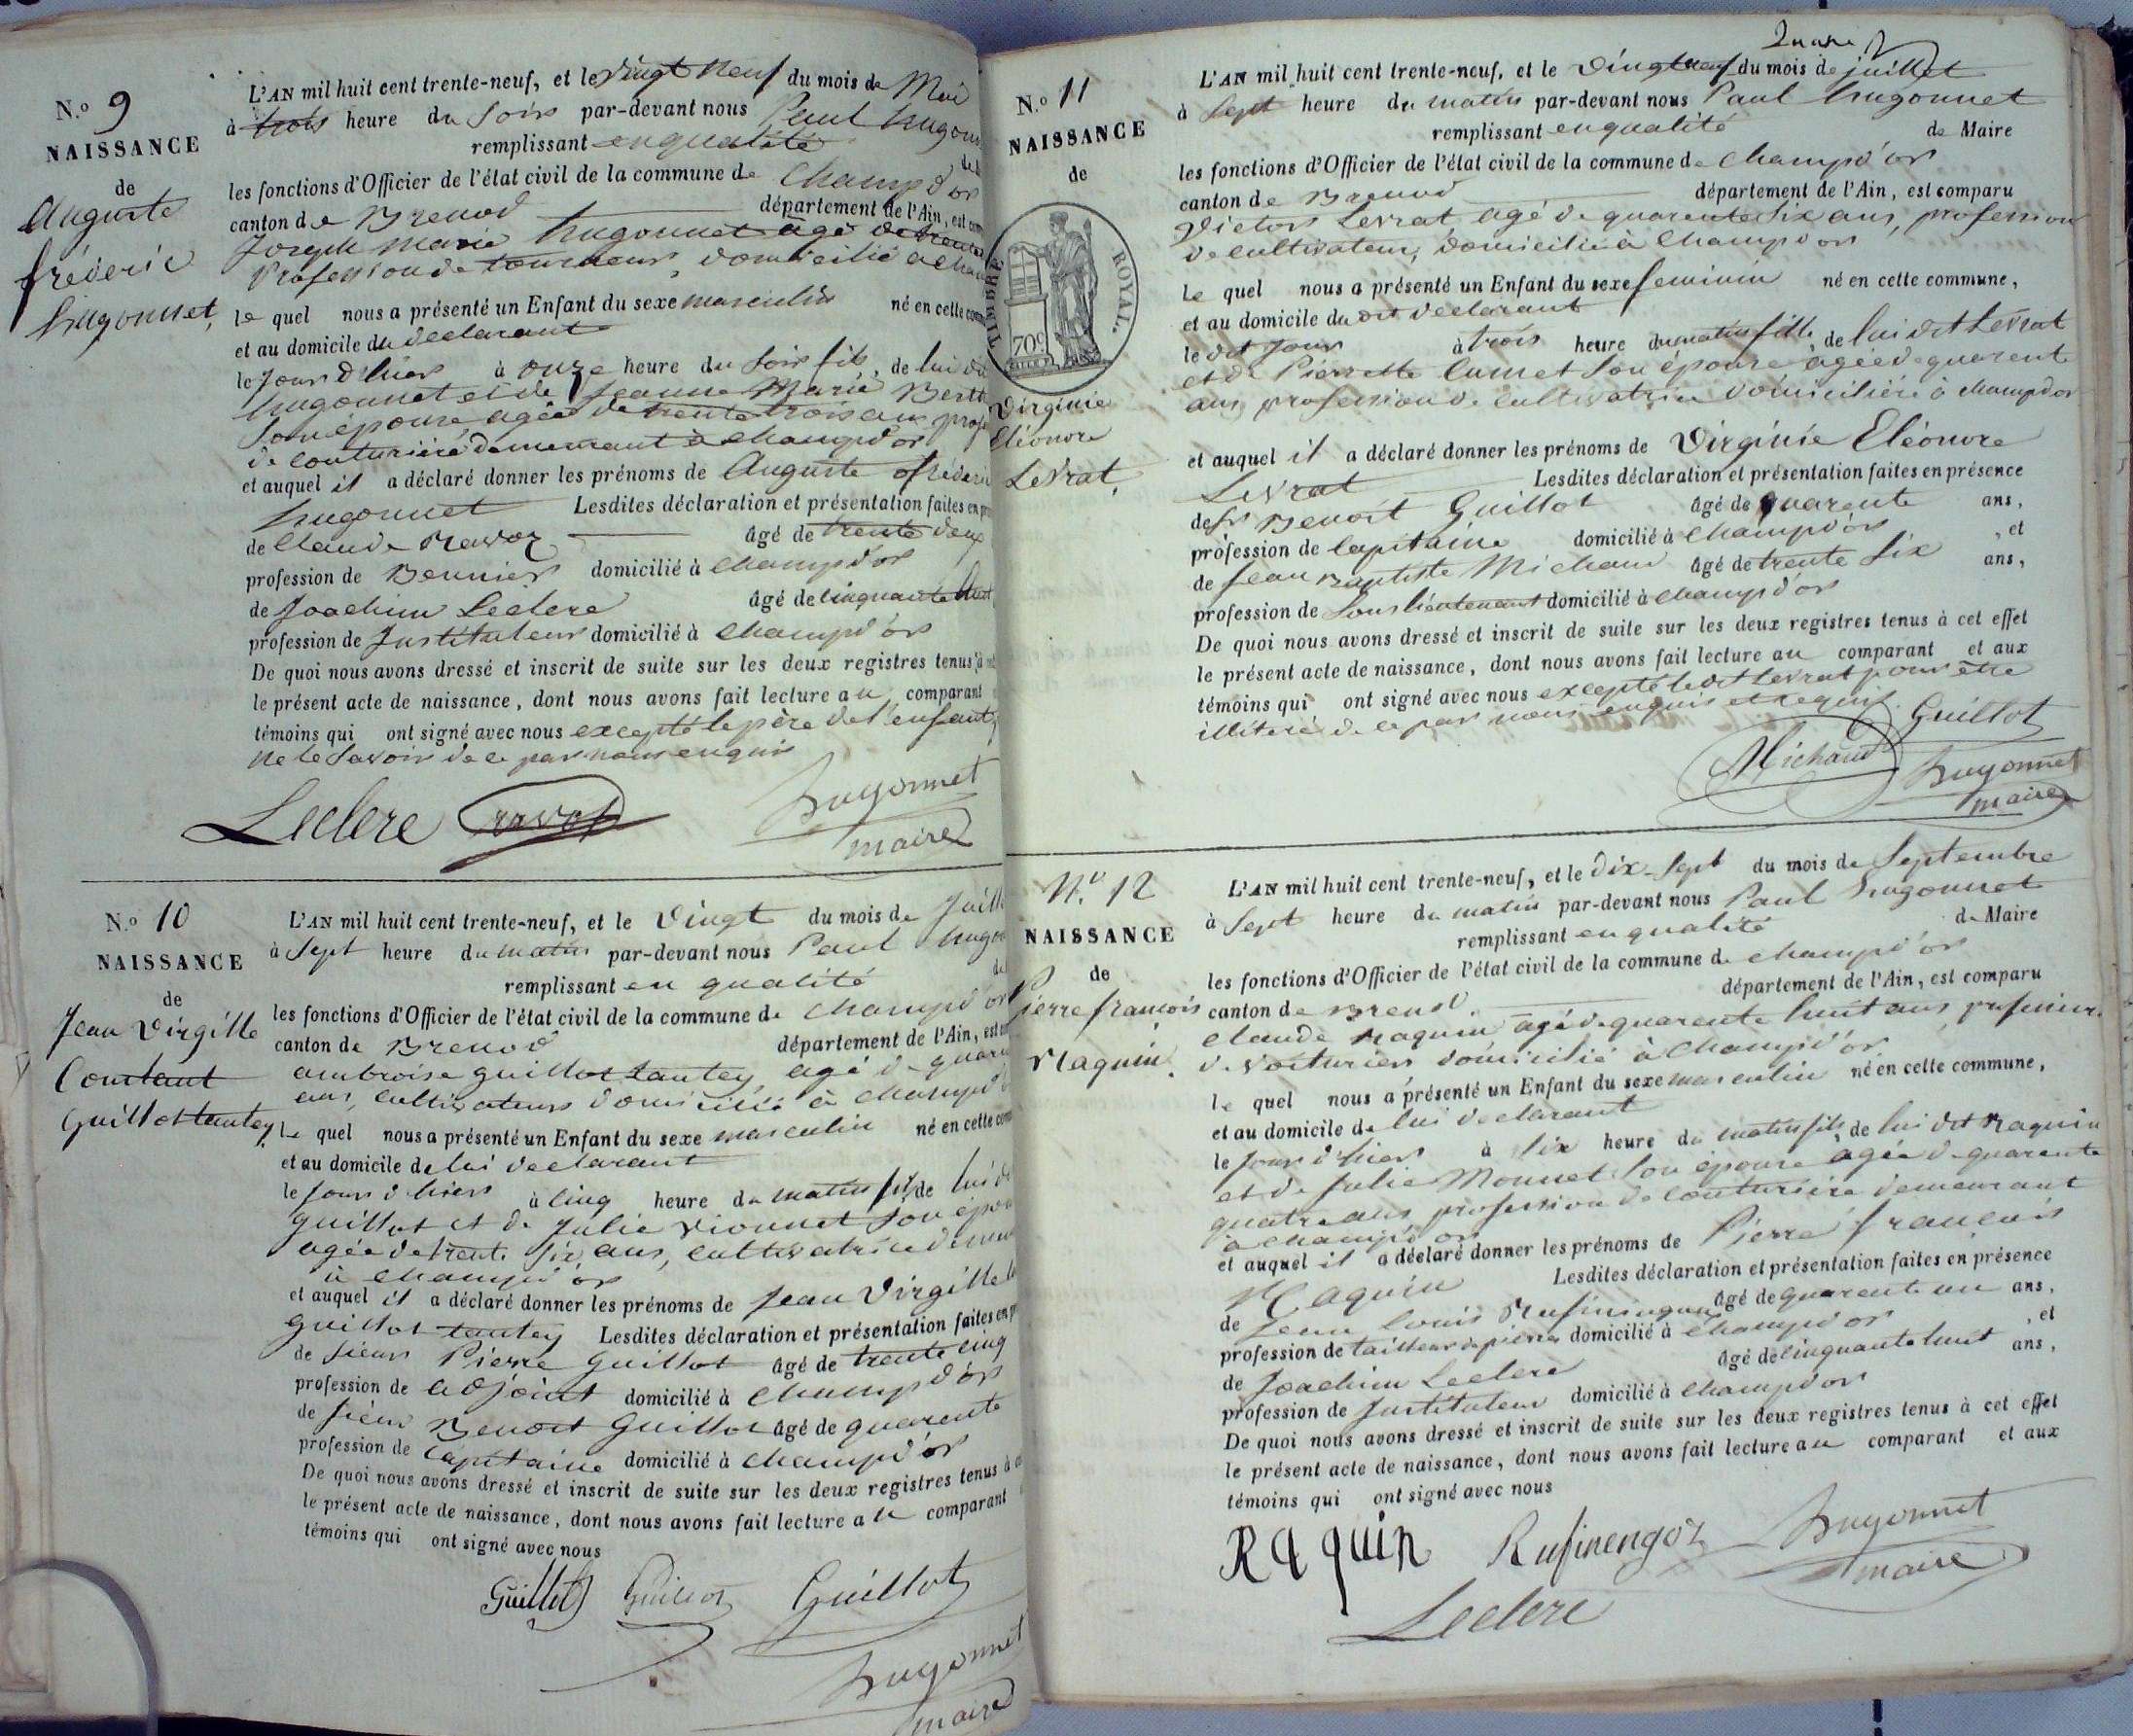 N.o 9
NAISSANCE
de
Auguste
fréderic
hugonnet,
L'AN mil huit cent trente-neuf, et le vingt neuf du mois de Mai
à trois heure du Soir par-devant nous Paul hugon
remplissant en qualité de
les fonctions d'Officier de l'état civil de la commune de Champd'or
canton de Brenod département de l'Ain, est com
Joseph Marie hugonnet agé de trente
profession de tourneur, domicilié a Cham
le quel nous a présenté un Enfant du sexe masculin né en cette com
et au domicile du declarant
le Jour d'hier à onze heure du Soir fils, de lui dit
hugonnet et de Jeanne Marie Berth
Son épouse agée de trente trois ans, prof
de couturiére demeurant à Champd'or
et auquel il a déclaré donner les prénoms de Auguste fréderic
hugonnet Lesdites déclaration et présentation faites en pr
de Claude Ravoz âgé de trente deux
profession de domicilié à Champd'or
de Joachim Leclerc âgé de Cinquante huit
profession de Instituteur domicilié à Champd'or
De quoi nous avons dressé et inscrit de suite sur les deux registres tenus à
le présent acte de naissance, dont nous avons fait lecture au comparant
témoins qui ont signé avec nous excepté le père de l'enfant
ne le Savoir de ce par nous enquis
Leclerc Ravoz hugonnet
maire
N.o 10
NAISSANCE
de
Jean Virgille
Constant
Guillot tantey,
L'AN mil huit cent trente-neuf, et le vingt du mois de Juill
à Sept heure du matin par-devant nous Paul hugo
remplissant en qualité de
les fonctions d'Officier de l'état civil de la commune de Champd'or
canton de Brenod département de l'Ain, est com
ambroise guillot tantey agé de quara
ans, cultivateur domicilié à Champd'
le quel nous a présenté un Enfant du sexe masculin né en cette com
et au domicile de lui declarant
le Jour d'hier à cinq heure du matin fils, de lui dit
guillot et de Julie Vionnet Son épou
agée de trente Six ans, cultivatrice demeu
à Champd'or
et auquel il a déclaré donner les prénoms de Jean Virgille
guillot tantey Lesdites déclaration et présentation faites en p
de Sieur Pierre Guillot âgé de trente cinq
profession de adjoint domicilié à Champd'or
de Sieur Benoit Guillot âgé de quarente
profession de Capitaine domicilié à Champd'or
De quoi nous avons dressé et inscrit de suite sur les deux registres tenus à c
le présent acte de naissance, dont nous avons fait lecture au comparant
témoins qui ont signé avec nous
Guillot Guillot Guillot
hugonnet
maire
N.o 11
NAISSANCE
de
TIMBRE ROYAL.
70c
Virginie
Eléonore
Levrat,
L'AN mil huit cent trente-neuf, et le vingt neuf du mois de juillet
à Sept heure du matin par-devant nous Paul hugonnet
remplissant en qualité de Maire
les fonctions d'Officier de l'état civil de la commune de Champd'or
canton de Brenod département de l'Ain, est comparu
Victor Levrat agé de quarente Six ans, profession
de cultivateur, domicilié à Champd'or
le quel nous a présenté un Enfant du sexe feminin né en cette commune,
et au domicile du dit declarant
le dit Jour à trois heure du matin fille, de lui dit Levrat
et de Pierrette Son épouse agée de quarent
ans, profession de cultivatrice domiciliée à Champd'or
et auquel il a déclaré donner les prénoms de Virginie Eléonore
Levrat Lesdites déclaration et présentation faites en présence
de Sr Benoit Guillot âgé de quarente ans,
profession de Capitaine domicilié à Champd'or, et
de Jean Baptiste Michaud âgé de trente Six ans,
profession de Sous lieutenant domicilié à Champd'or
De quoi nous avons dressé et inscrit de suite sur les deux registres tenus à cet effet
le présent acte de naissance, dont nous avons fait lecture au comparant et aux
témoins qui ont signé avec nous excepté ledit Levrat pour être
illiteré de ce par nous enquis et requis.
Guillot
Michaud hugonnet
maire
N.o 12
NAISSANCE
de
Pierre francois
Raquin.
L'AN mil huit cent trente-neuf, et le dix-Sept du mois de Septembre
à Sept heure du matin par-devant nous Paul hugonnet
remplissant en qualité de Maire
les fonctions d'Officier de l'état civil de la commune de Champd'or
canton de Brenod département de l'Ain, est comparu
Claude Raquin agé de quarente huit ans, profession
de voiturier domicilié à Champd'or
le quel nous a présenté un Enfant du sexe masculin né en cette commune,
et au domicile de lui declarant
le Jour d'hier à Six heure du matin fils, de lui dit Raquin
et de Julie Monnet Son épouse agée de quarente
quatre ans profession de couturiére demeurant
à Champd'or
et auquel il a déclaré donner les prénoms de Pierre francois
Raquin Lesdites déclaration et présentation faites en présence
de Jean Louis âgé de quarente un ans,
profession de tailleur de pierre domicilié à Champd'or, et
de Joachim Leclerc âgé de cinquante huit ans,
profession de Instituteur domicilié à Champd'or
De quoi nous avons dressé et inscrit de suite sur les deux registres tenus à cet effet
le présent acte de naissance, dont nous avons fait lecture au comparant et aux
témoins qui ont signé avec nous
Raquin Rufinengoz hugonnet
maire
Leclerc